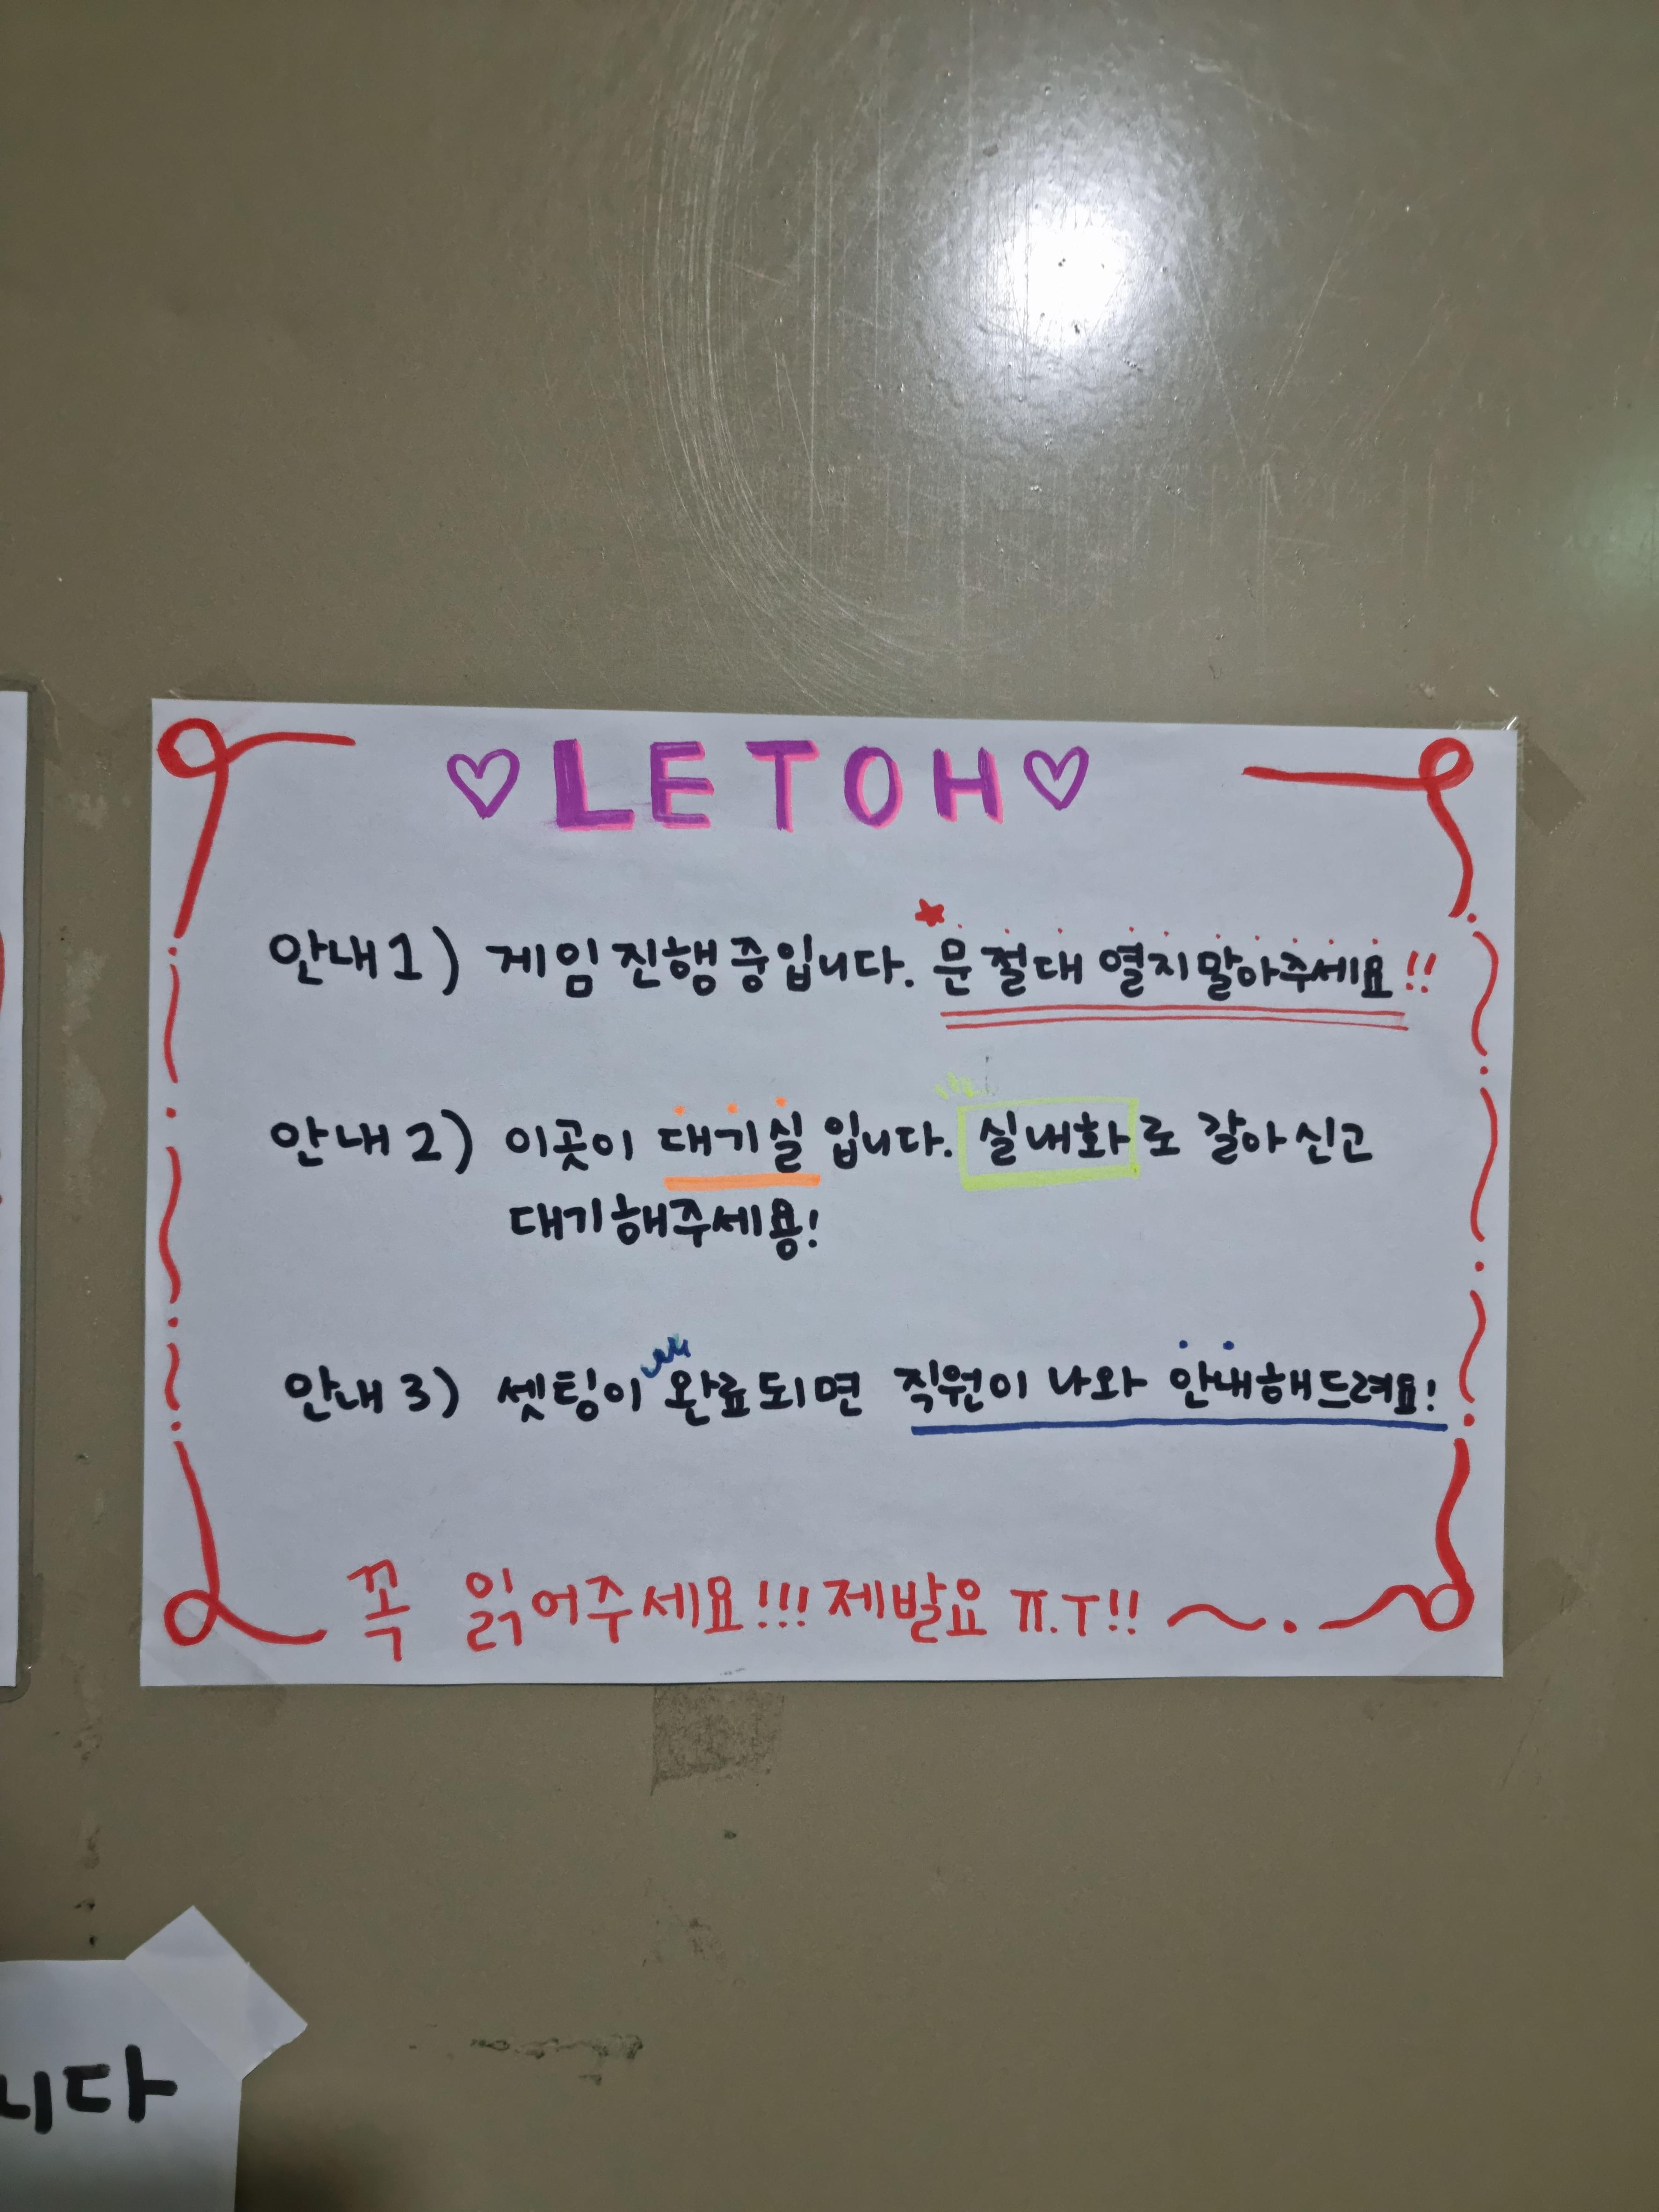 ♡LETOH♡
안내1) 게임 진행 중입니다. 문 절대 열지 말아주세요!!
안내2) 이곳이 대기실 입니다. 실내화로 갈아 신고
대기해주세용!
안내3) 셋팅이 완료되면 직원이 나와 안내해드려요!
꼭 읽어주세요!!! 제발요 ㅠ.ㅜ!!
니다